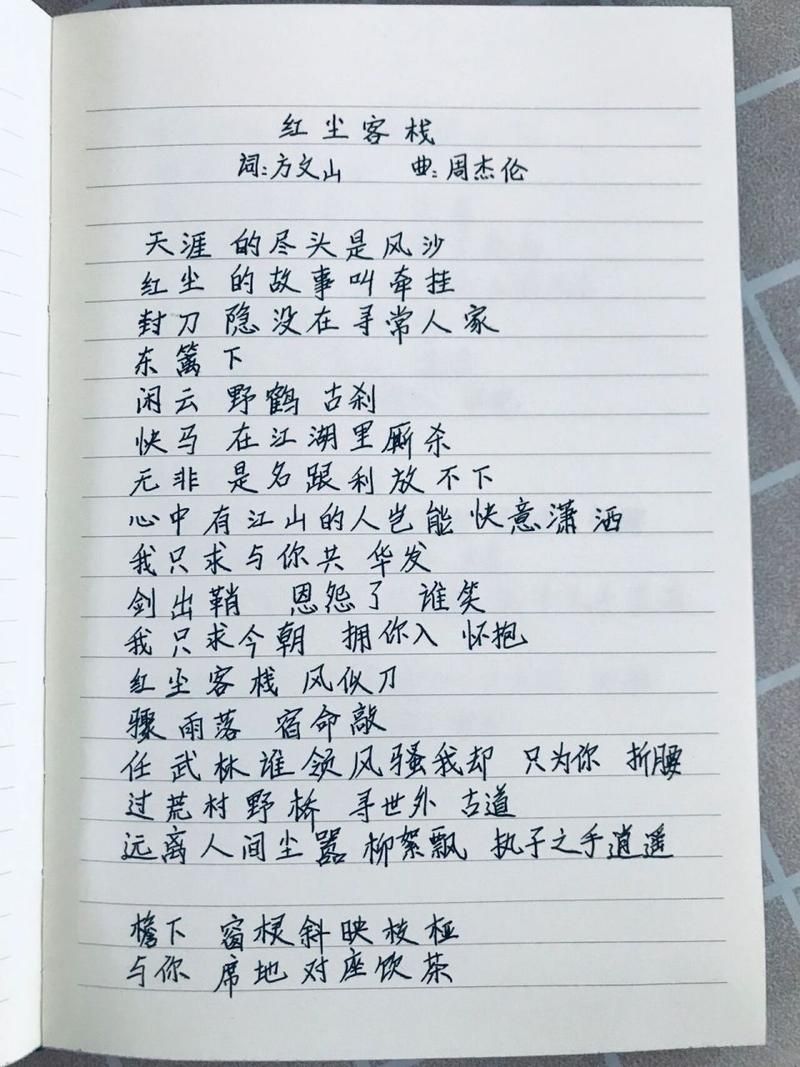 红尘客栈
词:方文山 曲:周杰伦
天涯 的尽头是风沙
红尘 的故事叫牵挂
封刀 隐没在寻常人家
东篱下
闲云 野鹤 古刹
快马 在江湖里厮杀
无非 是名跟利放不下
心中有江山的人岂能 快意潇洒
我只求与你共 华发
剑出鞘 恩怨了 谁笑
我只求今朝 拥你入 怀抱
红尘客栈 风似刀
骤雨落 宿命敲
任武林谁领风骚我却 只为你 折腰
过荒村野桥 寻世外 古道
远离人间尘嚣 柳絮飘 执子之手逍遥
檐下 窗棂斜映枝桠
与你 席地对座饮茶